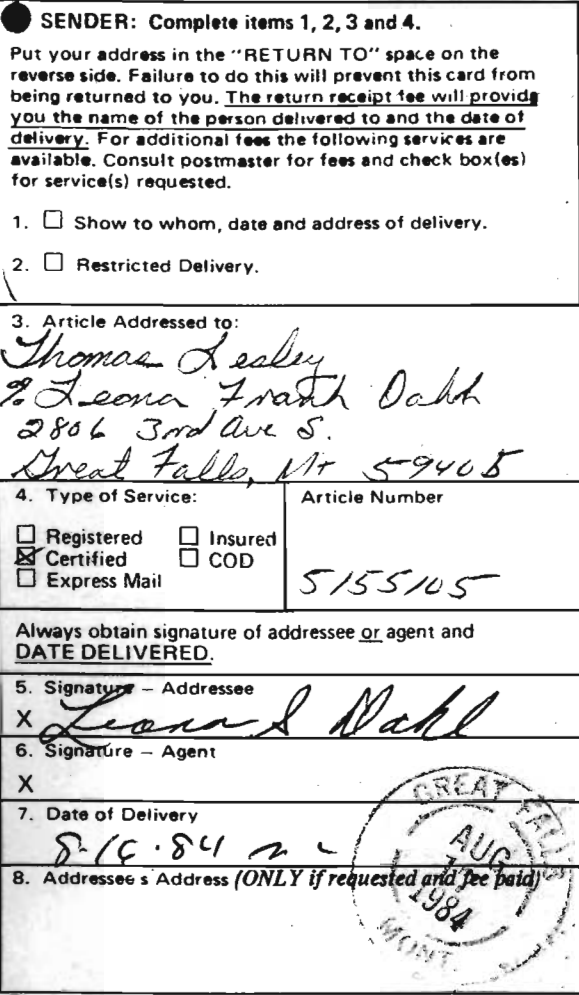 SENDER: Complete items 1, 2, 3 and 4.
Put your address in the "RETURN TO" space on the
reverse side. Failure to do this will prevent this card from
being returned to you. The return receipt fee will provide
you the name of the person delivered to and the date of
delivery. For additional fees the following services are
available. Consult postmaster for fees and check box(es)
for service(s) requested.
1. ☐ Show to whom, date and address of delivery.
2. ☐ Restricted Delivery.
3. Article Addressed to:
Thomas Lesley
% Leona Frank Dahl
2806 3rd Ave S.
Great Falls, Mt 59405
4. Type of Service:
☐ Registered ☐ Insured
☒ Certified ☐ COD
☐ Express Mail
Article Number
5155105
Always obtain signature of addressee or agent and
DATE DELIVERED.
5. Signature – Addressee
X Leona S Dahl
6. Signature – Agent
X
7. Date of Delivery
8-16-84
8. Addressee s Address (ONLY if requested and fee paid)
GREAT FALLS
AUG
1984
MONT.